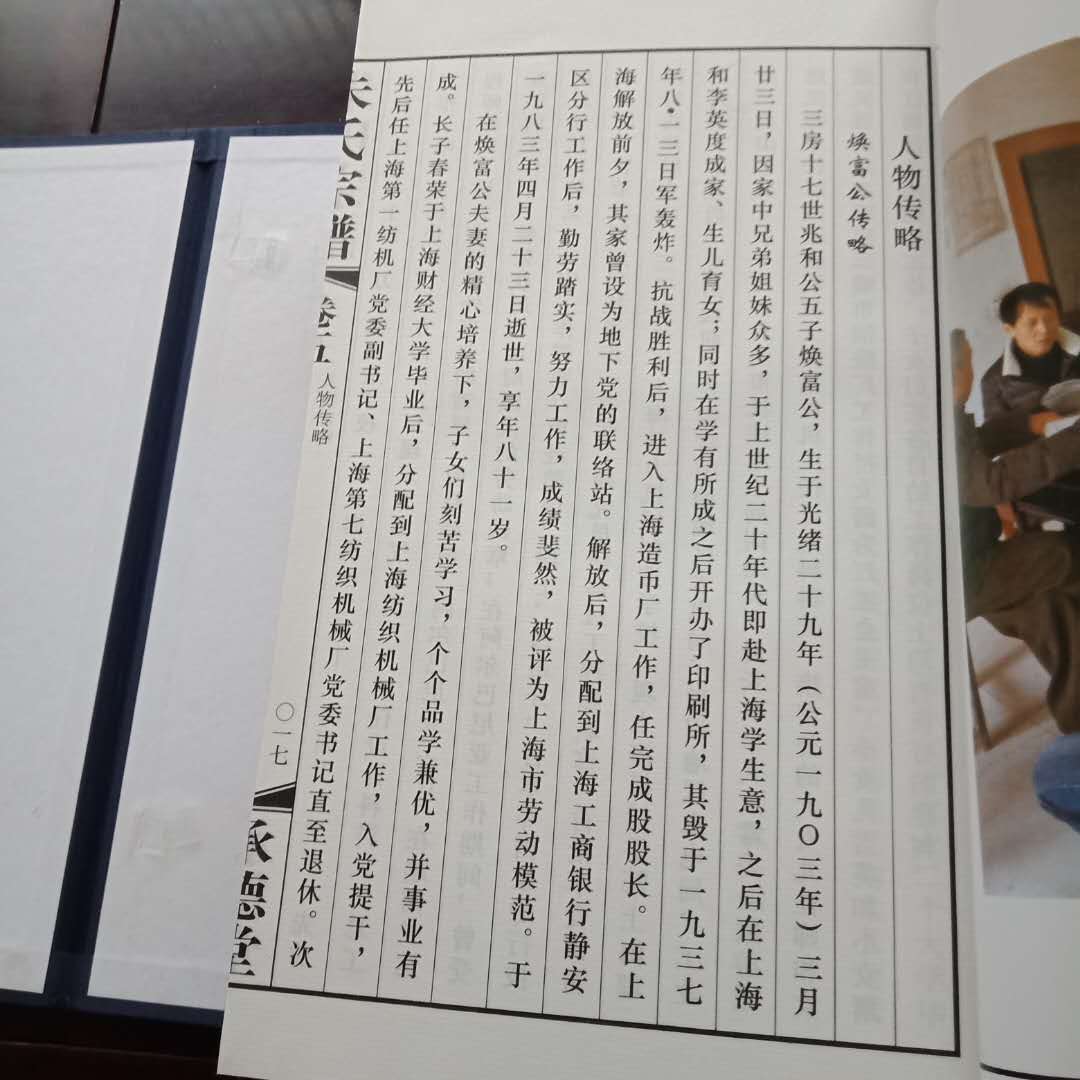 人物传略
焕富公传略
三房十七世兆和公五子焕富公，生于光绪二十九年（公元一九〇三年）三月
廿三日，因家中兄弟姐妹众多，于上世纪二十年代即赴上海学生意，之后在上海
和李英度成家、生儿育女；同时在学有所成之后开办了印刷所，其毁于一九三七
年八·一三日军轰炸。抗战胜利后，进入上海造币厂工作，任完成股股长。在上
海解放前夕，其家曾设为地下党的联络站。解放后，分配到上海工商银行静安
区分行工作后，勤劳踏实，努力工作，成绩斐然，被评为上海市劳动模范。于
一九八三年四月二十三日逝世，享年八十一岁。
在焕富公夫妻的精心培养下，子女们刻苦学习，个个品学兼优，并事业有
成。长子春荣于上海财经大学毕业后，分配到上海纺织机械厂工作，入党提干，
先后任上海第一纺机厂党委副书记、上海第七纺织机械厂党委书记直至退休。次
氏宗谱
卷五
人物传略
〇一七
承德堂